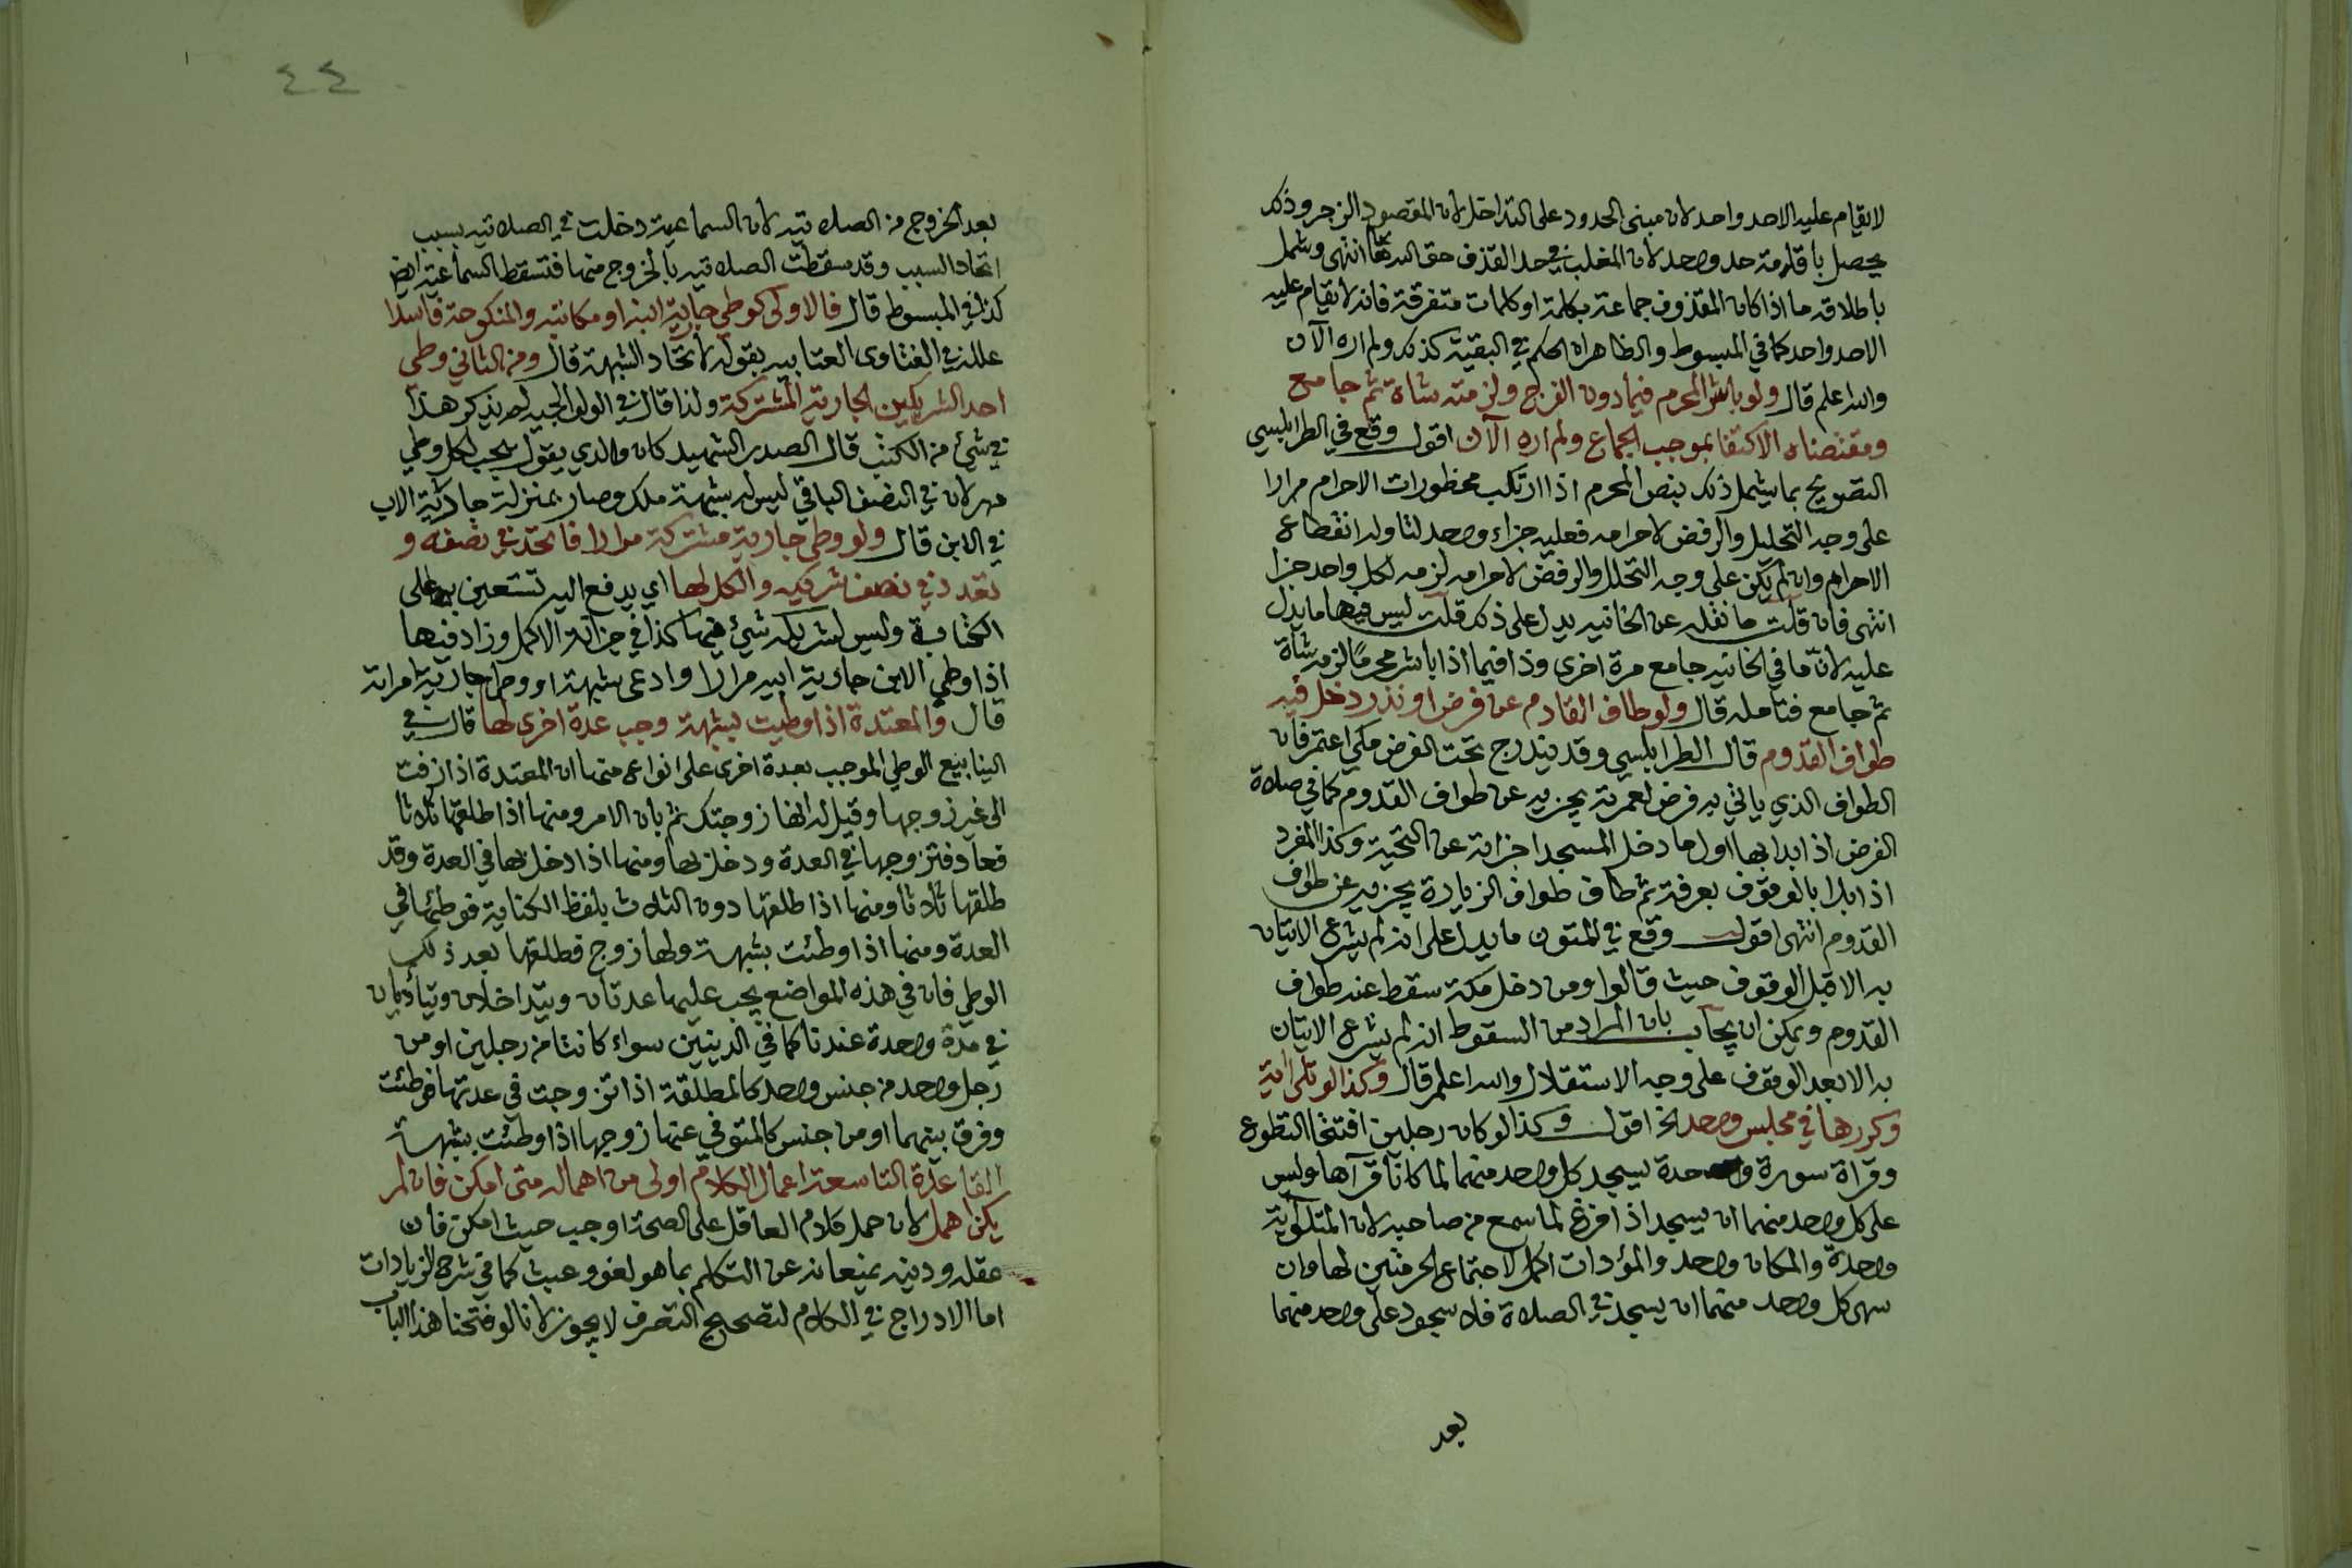 لا يقام عليه الا حد واحد لان مبنى الحدود على التداخل لان المقصود الزجر وذلك
يحصل باقامة حد واحد لان المغلب في حد القذف حق الله تعا انتهى وشمل
باطلاقه ما اذا كان المقذوف جماعة بكلمة او كلمات متفرقة فانه لا يقام عليه
الا حد واحد كما في المبسوط والظاهر ان الحكم في البقية كذلك ولم اره الآن
والله اعلم قال ولو باشر المحرم فيما دون الفرج ولزمته شاة ثم جامع
ومقتضاه الاكتفا بموجب الجماع ولم اره الآن اقول وقع في الطرابلسي
التصريح بما يشمل ذلك بنص المحرم اذا ارتكب محظورات الاحرام مرارا
على وجه التحليل والرفض لاحرامه فعليه جزاء واحد لتاوله انقطاع
الاحرام وان لم يكن على وجه التحلل والرفض لاحرامه لزمه لكل واحد جزا
انتهى فان قلت ما نقله عن الخانيه يدل على ذلك قلت ليس فيها ما يدل
عليه لان ما في الخانيه جامع مرة اخرى وذا فيما اذا باشر محرما لزمه شاة
ثم جامع فتامله قال ولو طاف القادم عن فرض او نذر دخل فيه
طواف القدوم قال الطرابلسي وقد يندرج تحت الفرض مكي اعتمر فان
الطواف الذي ياتي به فرض لعمرته يجزيه عن طواف القدوم كما في صلاة
الفرض اذا بدا بها اول ما دخل المسجد اجزاته عن التحية وكذا المفرد
اذا بدا بالوقوف بعرفة ثم طاف طواف الزيارة يجزيه عن طواف
القدوم انتهى اقول وقع في المتون ما يدل على انه لم يشرع الاتيان
به الا قبل الوقوف حيث قالوا ومن دخل مكة سقط عنه طواف
القدوم ويمكن ان يجاب بان المراد من السقوط انه لم يشرع الاتيان
به الا بعد الوقوف على وجه الاستقلال والله اعلم قال وكذا لو تلى اية
وكررها في مجلس واحد الخ اقول وكذا لو كان رجلين افتتحا التطوع
وقراة سورة واحدة يسجد كل واحد منهما لما كانا قرآها وليس
على كل واحد منهما ان يسجد اذا فرغ لما سمع من صاحبه لان المتلوية
واحدة والمكان واحد والمؤدات اكمل لاجتماع الحرمتين لها وان
سهى كل واحد منهما ان يسجد في الصلاة فلا سجود على واحد منهما
بعد
٤٤
بعد الخروج من الصلاتيه لان السماعية دخلت في الصلاتيه بسبب
اتحاد السبب وقد سقطت الصلاتيه بالخروج منها فتسقط السماعية ايض
كذا في المبسوط قال فالاولى كوطي جارية ابنه او مكاتبه والمنكوحة فاسدا
علله في الفتاوى العتابيه بقوله لاتحاد الشبهة قال ومن الثاني وطي
احد الشريكين الجارية المشتركة ولذا قال في الولوالجيه لم يذكر هذا
في شئ من الكتب قال الصدر الشهيد كان والدي يقول يجب لكل وطي
مهر لان في النصف الباقي ليس له شبهة ملك وصار بمنزلة جارية الاب
في الابن قال ولو وطي جارية مشتركة مرارا فاتحد في نصفه و
تعدد في نصف شريكه والكل لها اي يدفع اليه تستعين به على
الكتابة وليس لشريكه شئ فيها كذا في خزانة الاكمل وزاد فيها
اذا وطي الابن جارية ابيه مرارا وادعى شبهة او وطي جارية امراته
قال والمعتدة اذا وطيت بشبهة وجب عدة اخرى لها قال في
الينابيع الوطي الموجب بعدة اخرى على انواع منها ان المعتدة اذا زفت
الى غير زوجها وقيل له انها زوجتك ثم بان الامر ومنها اذا طلقها ثلاثا
فعاد فتزوجها في العدة ودخل بها ومنها اذا دخل بها في العدة وقد
طلقها ثلاثا ومنها اذا طلقها دون الثلاث بلفظ الكناية فوطئها في
العدة ومنها اذا وطئت بشبهة ولها زوج فطلقها بعد ذلك
الوطي فان في هذه المواضع يجب عليها عدتان ويتداخلان ويتأديان
في مدة واحدة عندنا كما في الدينين سواء كانتا من رجلين او من
رجل واحد من جنس واحد كالمطلقة اذا تزوجت في عدتها فوطئت
وفرق بينهما او من جنس كالمتوفي عنها زوجها اذا وطئت بشبهة
القاعدة التاسعة اعمال الكلام اولى من اهماله متى امكن فان لم
يكن اهمل لان حمل كلام العاقل على الصحة اوجب حيث امكن فان
عقله ودينه يمنعانه عن التكلم بما هو لغو وعبث كما في شرح الزيادات
اما الادراج في الكلام لتصحيح التصرف لا يجوز لانا لو فتحنا هذا الباب